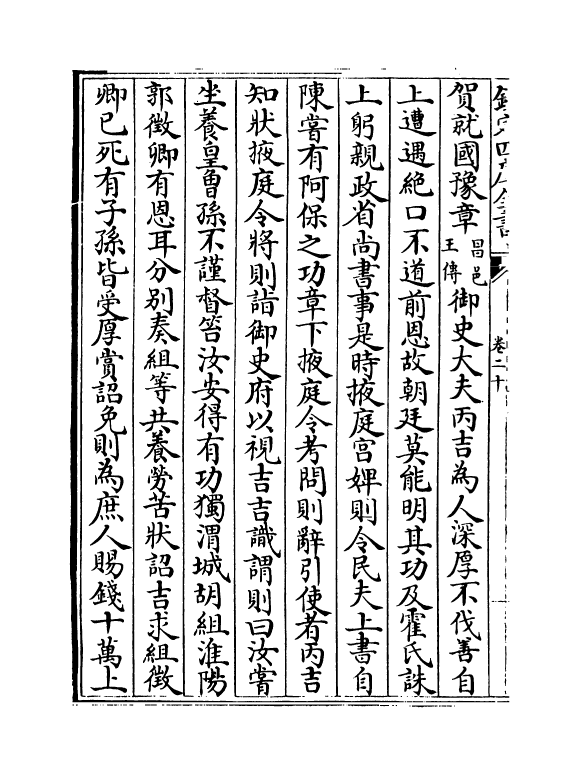 欽定四庫全書
卷二十
賀就國豫章昌邑王傳御史大夫丙吉為人深厚不伐善自
上遭遇絶口不道前恩故朝廷莫能明其功及霍氏誅
上躬親政省尚書事是時掖庭宫婢則令民夫上書自
陳嘗有阿保之功章下掖庭令考問則辭引使者丙吉
知狀掖庭令將則詣御史府以視吉吉識謂則曰汝嘗
坐養皇曽孫不謹督笞汝安得有功獨渭城胡組淮陽
郭徵卿有恩耳分别奏組等共養勞苦狀詔吉求組徵
卿已死有子孫皆受厚賞詔免則為庶人賜錢十萬上